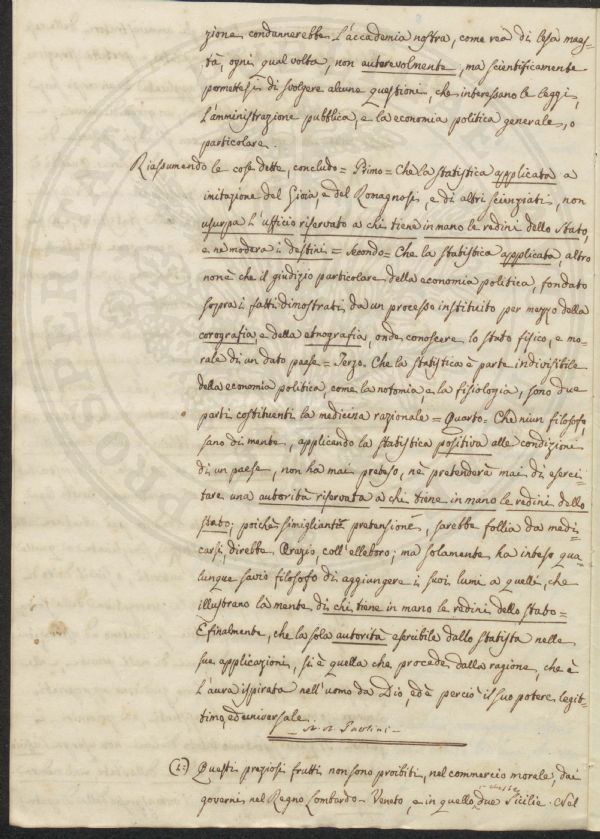 zione condannerebbe l'accademia nostra, come rea di lesa maes-
tà, ogni qual volta, non autorevolmente, ma scientificamente
permettesi di svolgere alcune questioni, che interessano le leggi,
l'amministrazione pubblica, e la economia politica generale, o
particolare.
Riassumendo le cose dette, concludo = Primo = Che la statistica applicata a
imitazione del Gioia, e del Romagnosi, e di altri scienziati, non
usurpa l'ufficio riservato a chi tiene in mano le redini dello Stato,
e ne modera i destini = Secondo = Che la statistica applicata, altro
non è che il giudizio particolare della economia politica, fondato
sopra i fatti dimostrati da un processo instituito per mezzo della
corografia e della etnografia, onde conoscere lo stato fisico, e mo-
rale di un dato paese = Terzo. Che la statistica è parte indivisibile
della economia politica, come la notomia, e la fisiologia, sono due
parti costituenti la medicina razionale = Quarto = Che niun filosofo
sano di mente, applicando la statistica positiva alle condizioni
di un paese, non ha mai preteso, nè pretenderà mai di eserci-
tare una autorità riservata a chi tiene in mano le redini dello
stato; poichè simigliante pretensione, sarebbe follia da medi-
carsi, direbbe Orazio, coll'elleboro; ma solamente ha inteso qua-
lunque savio filosofo di aggiungere i suoi lumi a quelli, che
illustrano la mente di chi tiene in mano le redini dello stato =
E finalmente, che la sola autorità esercibile dallo statista nelle
sue applicazioni, si è quella che procede dalla ragione, che è
l'aura ispirata nell'uomo da Dio, ed è perciò il suo potere legit-
timo, ed universale.
A. A. Paolini
(1=) Questi preziosi frutti non sono proibiti, nel commercio morale, dai
governi nel Regno Lombardo-Veneto, e in quello due Sicilie. Nel